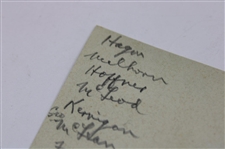 Hagan
Mulhorn
Hoffner
McLeod
Kerrigan
McLean